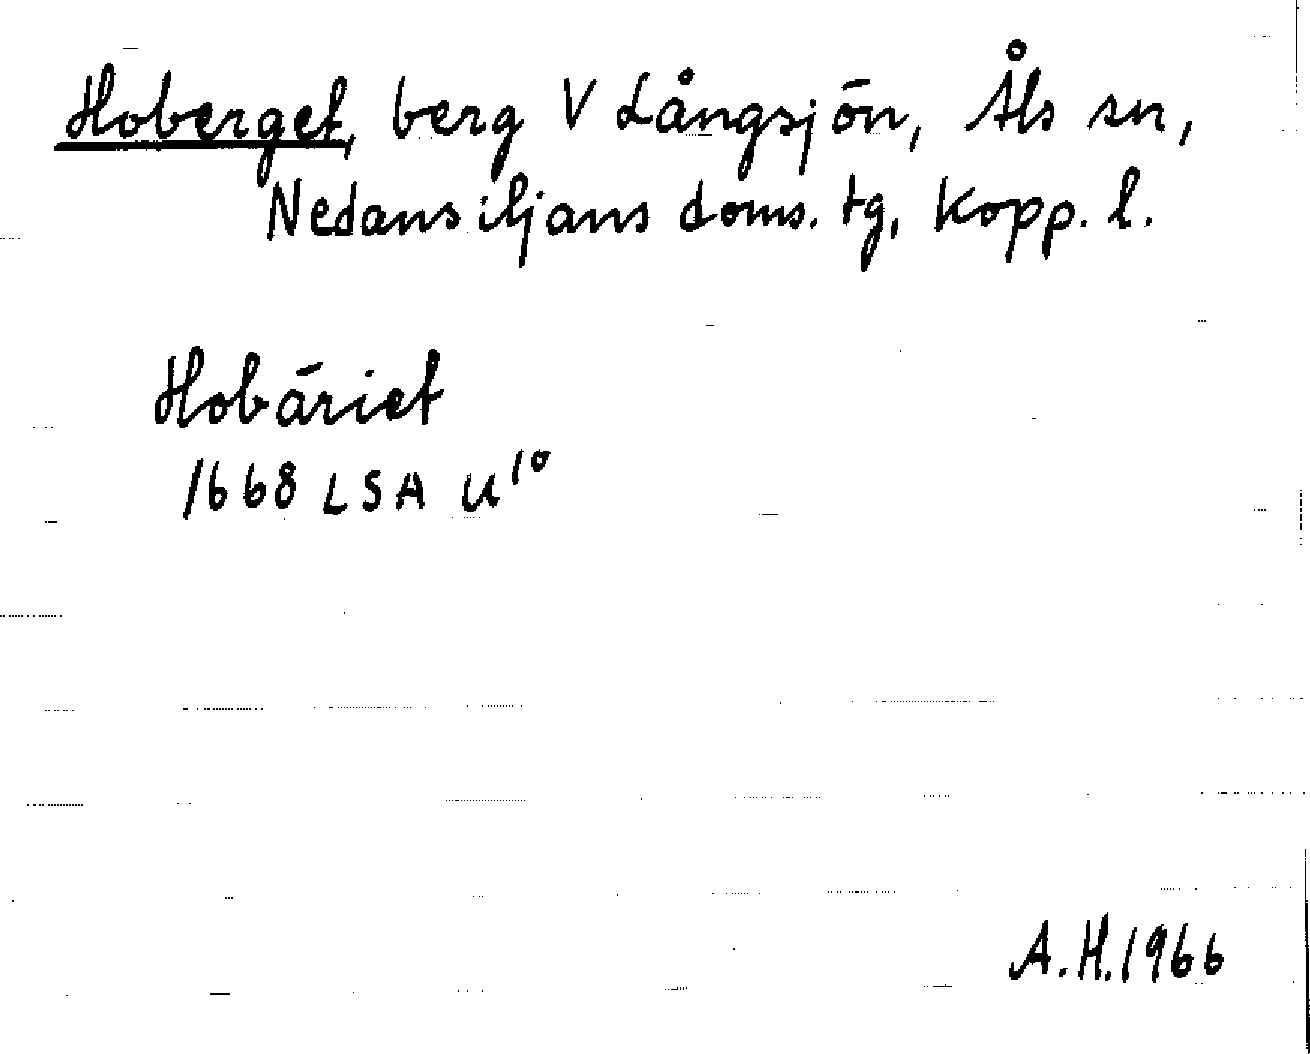 Hoberget, berg V Långsjön, Åls sn,
Nedansiljans doms. tg, Kopp. l.
Hobäriet
1668 LSA U¹⁰
A.H. 1966